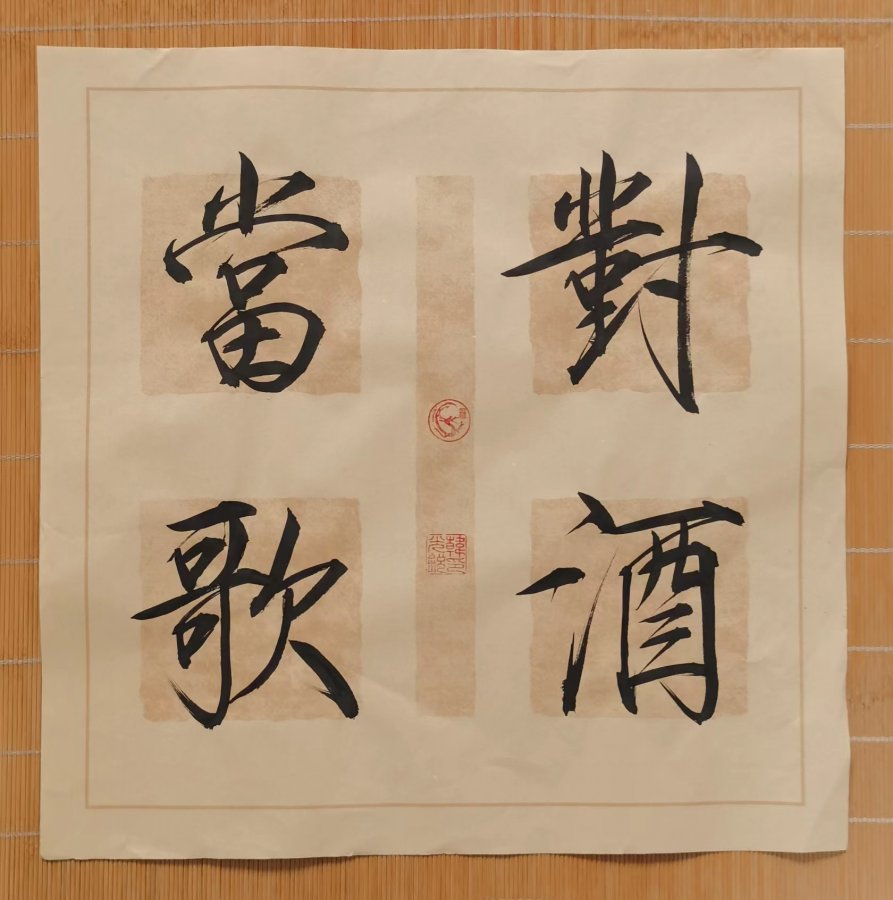 對酒
當歌